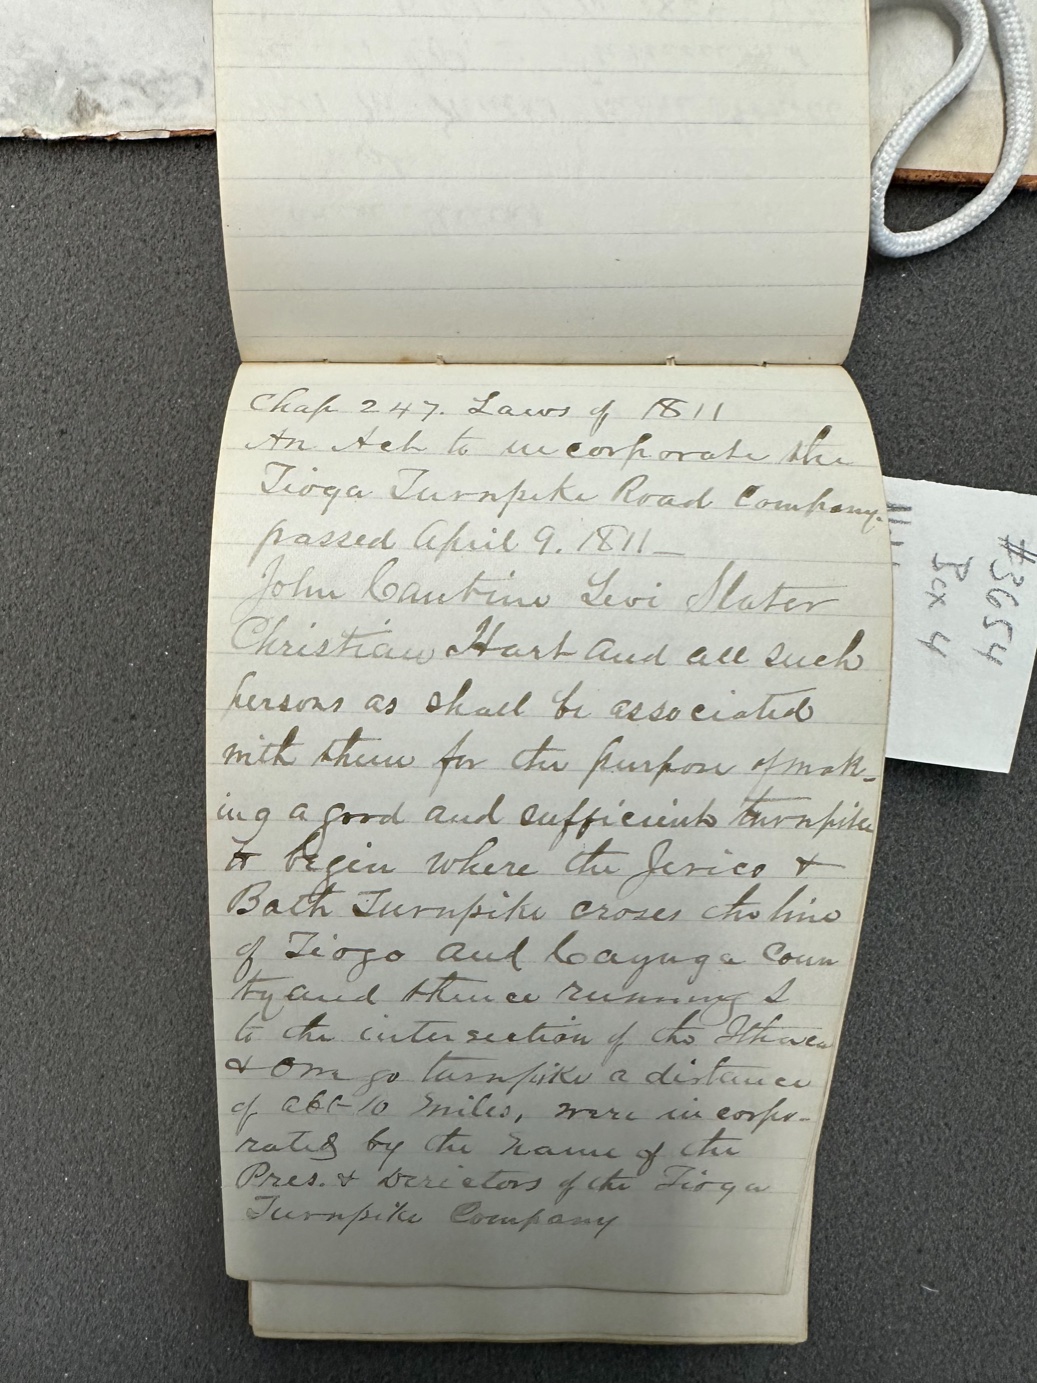 Chap 247. Laws of 1811
An Act to incorporate the
Tioga Turnpike Road Company.
passed April 9. 1811_
John Cantine Levi Slater
Christian Hart and all such
persons as shall be associated
with them for the purpose of mak-
ing a good and sufficient turnpike
to begin where the Jerico &
Bath Turnpike croses the line
of Tioga and Cayuga Coun
ty and thence running S
to the intersection of the Ithaca
& Owego turnpike a distance
of abt 10 miles, were incorpo-
rated by the name of the
Pres. & Directors of the Tioga
Turnpike Company
#3654
Box 4